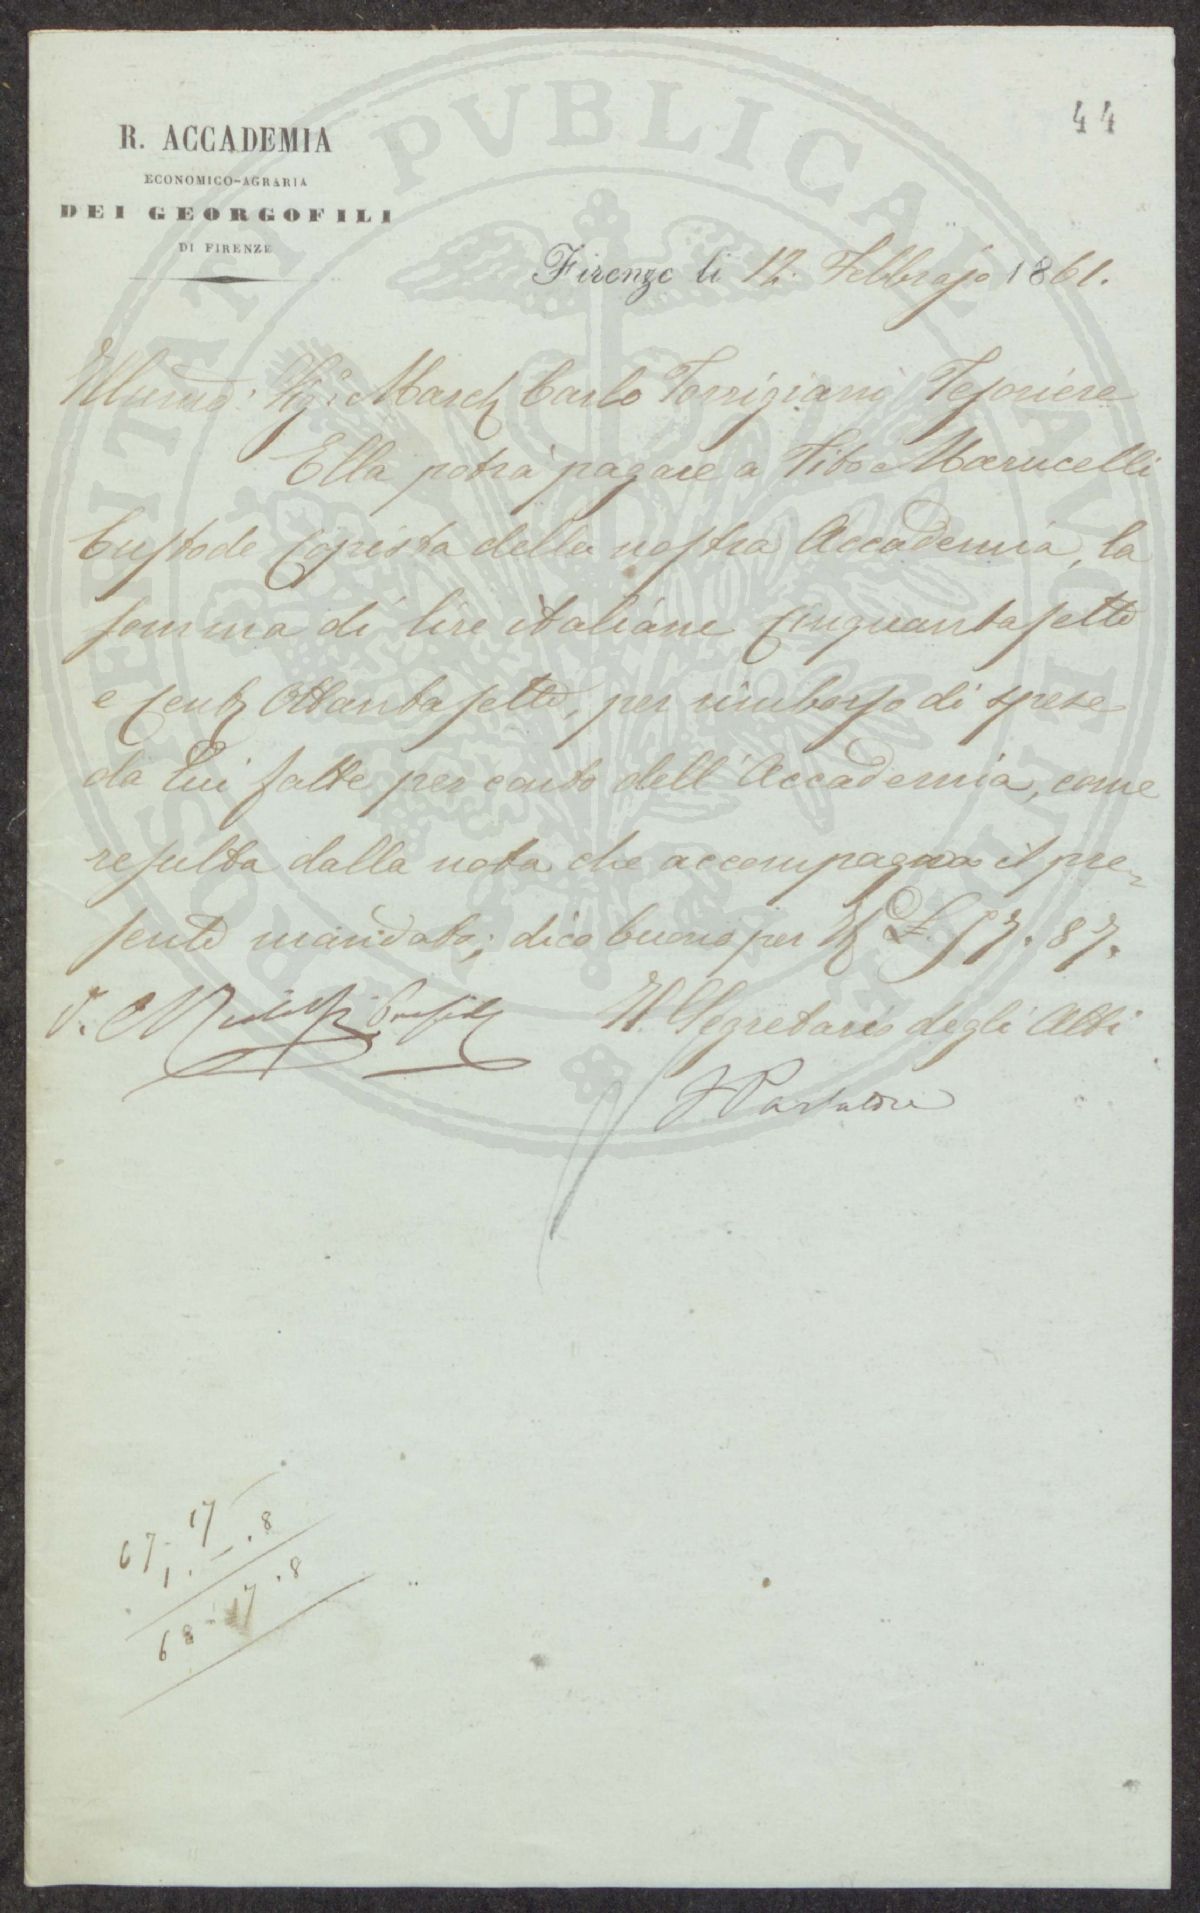 44
R. ACCADEMIA
ECONOMICO-AGRARIA
DEI GEORGOFILI
DI FIRENZE
Firenze li 12. Febbrajo 1861.
Illumo: Sigr: March Carlo Torrigiani Tesoriere
Ella potrà pagare a Tito Marucelli
Custode Copista della nostra Accademia, la
somma di lire italiane Cinquantasette
e Cent Ottantasette, per rimborso di spese
da Lui fatte per conto dell'Accademia, come
resulta dalla nota che accompagna il pre-
sente mandato; dico buono per £. 57. 87.
V. Ridolfi Presid
Il Segretario degli Atti
67. 17
1. - . 8
68 - 17 . 8
PROSPERITATI PVBLICAE AVGENDAE